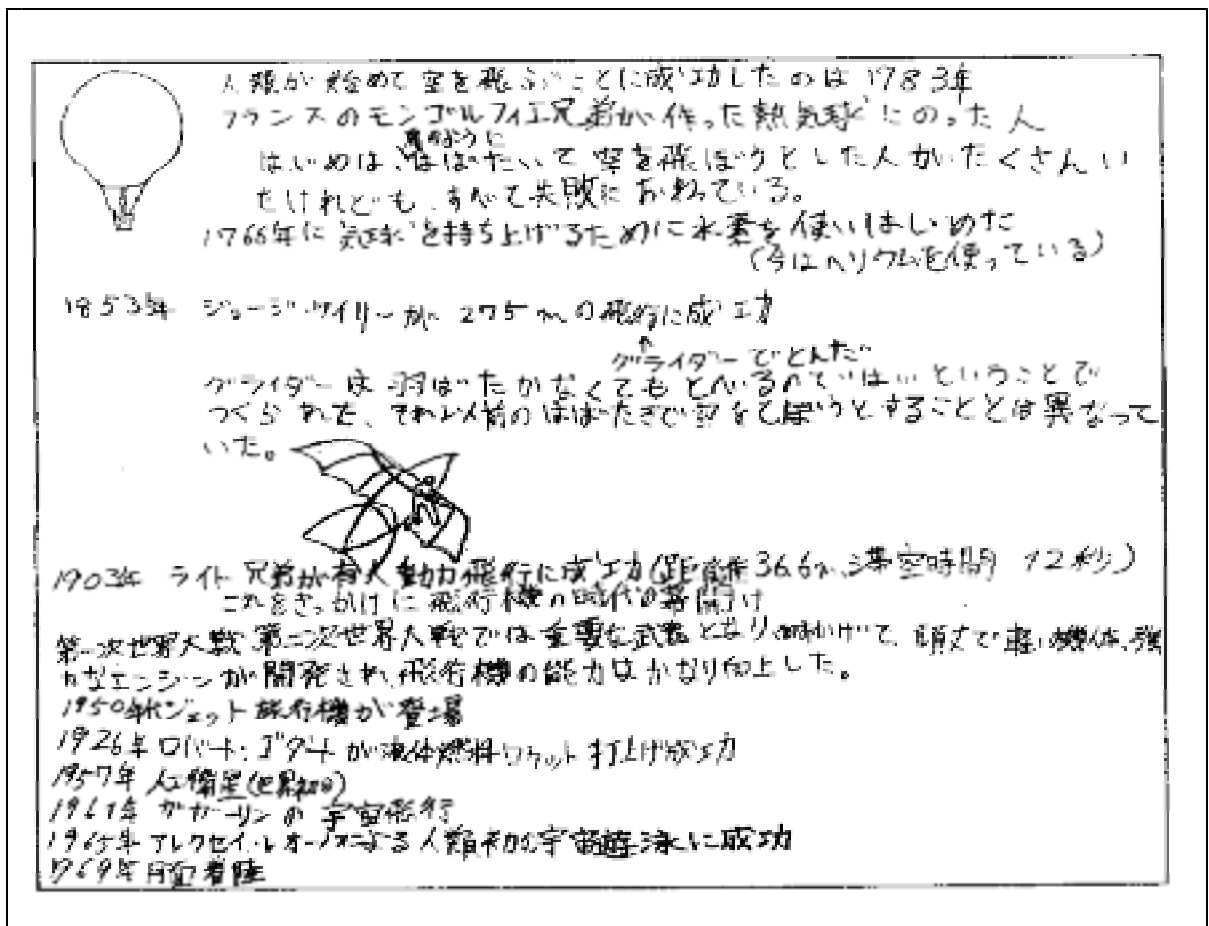 人類が始めて空を飛ぶことに成功したのは1783年
フランスのモンゴルフィエ兄弟が作った熱気球にのった人
鳥のように
はじめは、はばたいて空を飛ぼうとした人がたくさんい
たけれども、すべて失敗におわっている。
1766年に気球を持ち上げるために水素を使いはじめた
(今はヘリウムを使っている)
1853年 ジョージ・ケイリーが 275mの飛行に成功
↑
グライダーでとんだ
グライダーは羽ばたかなくてもとべるのではということで
つくられた、それ以前のはばたきで空をとぼうとすることとは異なって
いた。
1903年 ライト兄弟が有人動力飛行に成功(距離36.6m、滞空時間 12秒)
これをきっかけに飛行機の時代の幕開け
第一次世界大戦 第二次世界大戦では重要な武器となり 頑丈で軽い機体、強
力なエンジンが開発され、飛行機の能力はかなり向上した。
1950年代ジェット旅行機が登場
1926年 ロバート・ゴダートが液体燃料ロケット打上げ成功
1957年 人工衛星(世界初の)
1961年 ガガーリンの宇宙飛行
1965年 アレクセイ・レオーノフによる人類初の宇宙遊泳に成功
1969年月面着陸